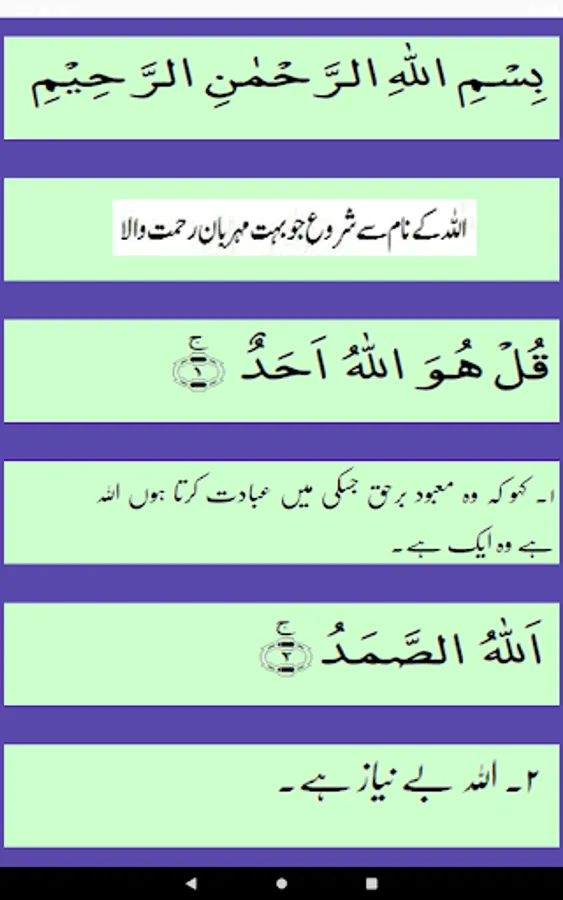 بِسْمِ اللهِ الرَّحْمٰنِ الرَّحِيْمِ
اللہ کے نام سے شروع جو بہت مہربان رحمت والا
قُلْ هُوَ اللهُ اَحَدٌ ۚ﴿۱﴾
۱۔ کہو کہ وہ معبود برحق جسکی میں عبادت کرتا ہوں اللہ
ہے وہ ایک ہے۔
اَللهُ الصَّمَدُ ۚ﴿۲﴾
۲۔ اللہ بے نیاز ہے۔